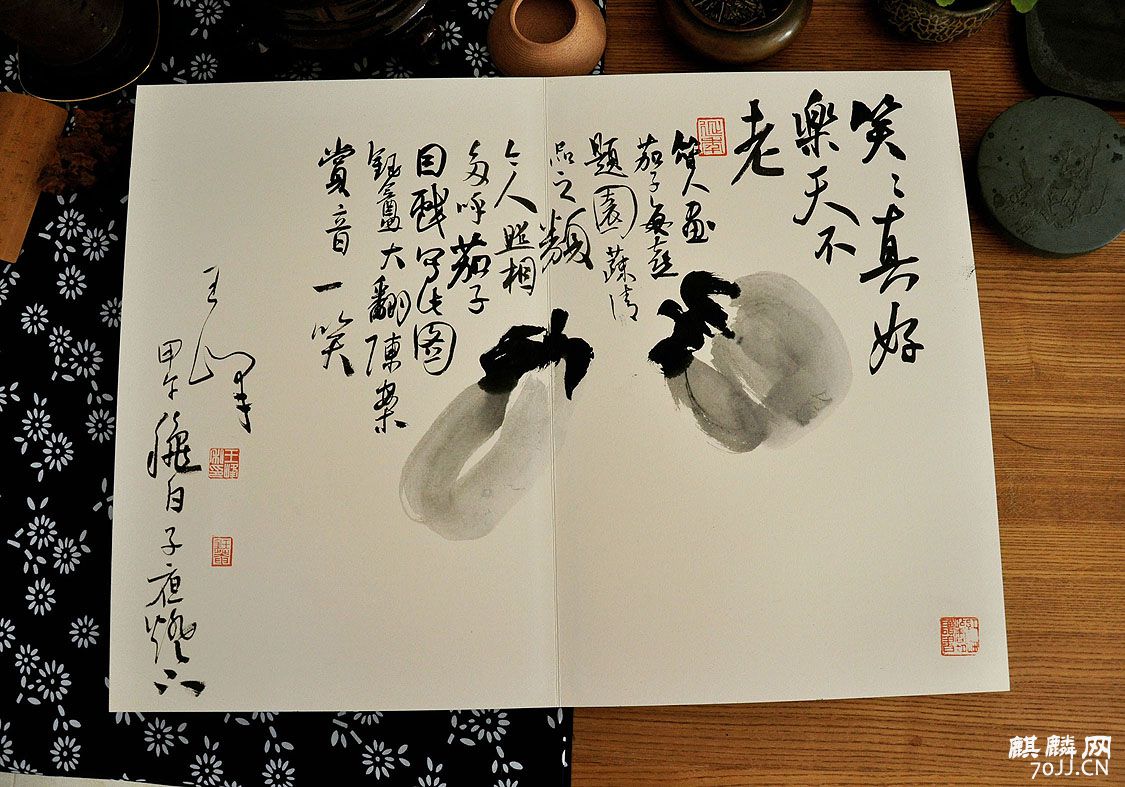 笑〻真好
樂天不
老
前人画
茄子每喜
題園蔬清
品之類
今人照相
多呼茄子
因戲写此圖
観畫大翻陳案
賞音一笑
王峰
甲午 白子夜燈下
麒麟网
70JJ.CN